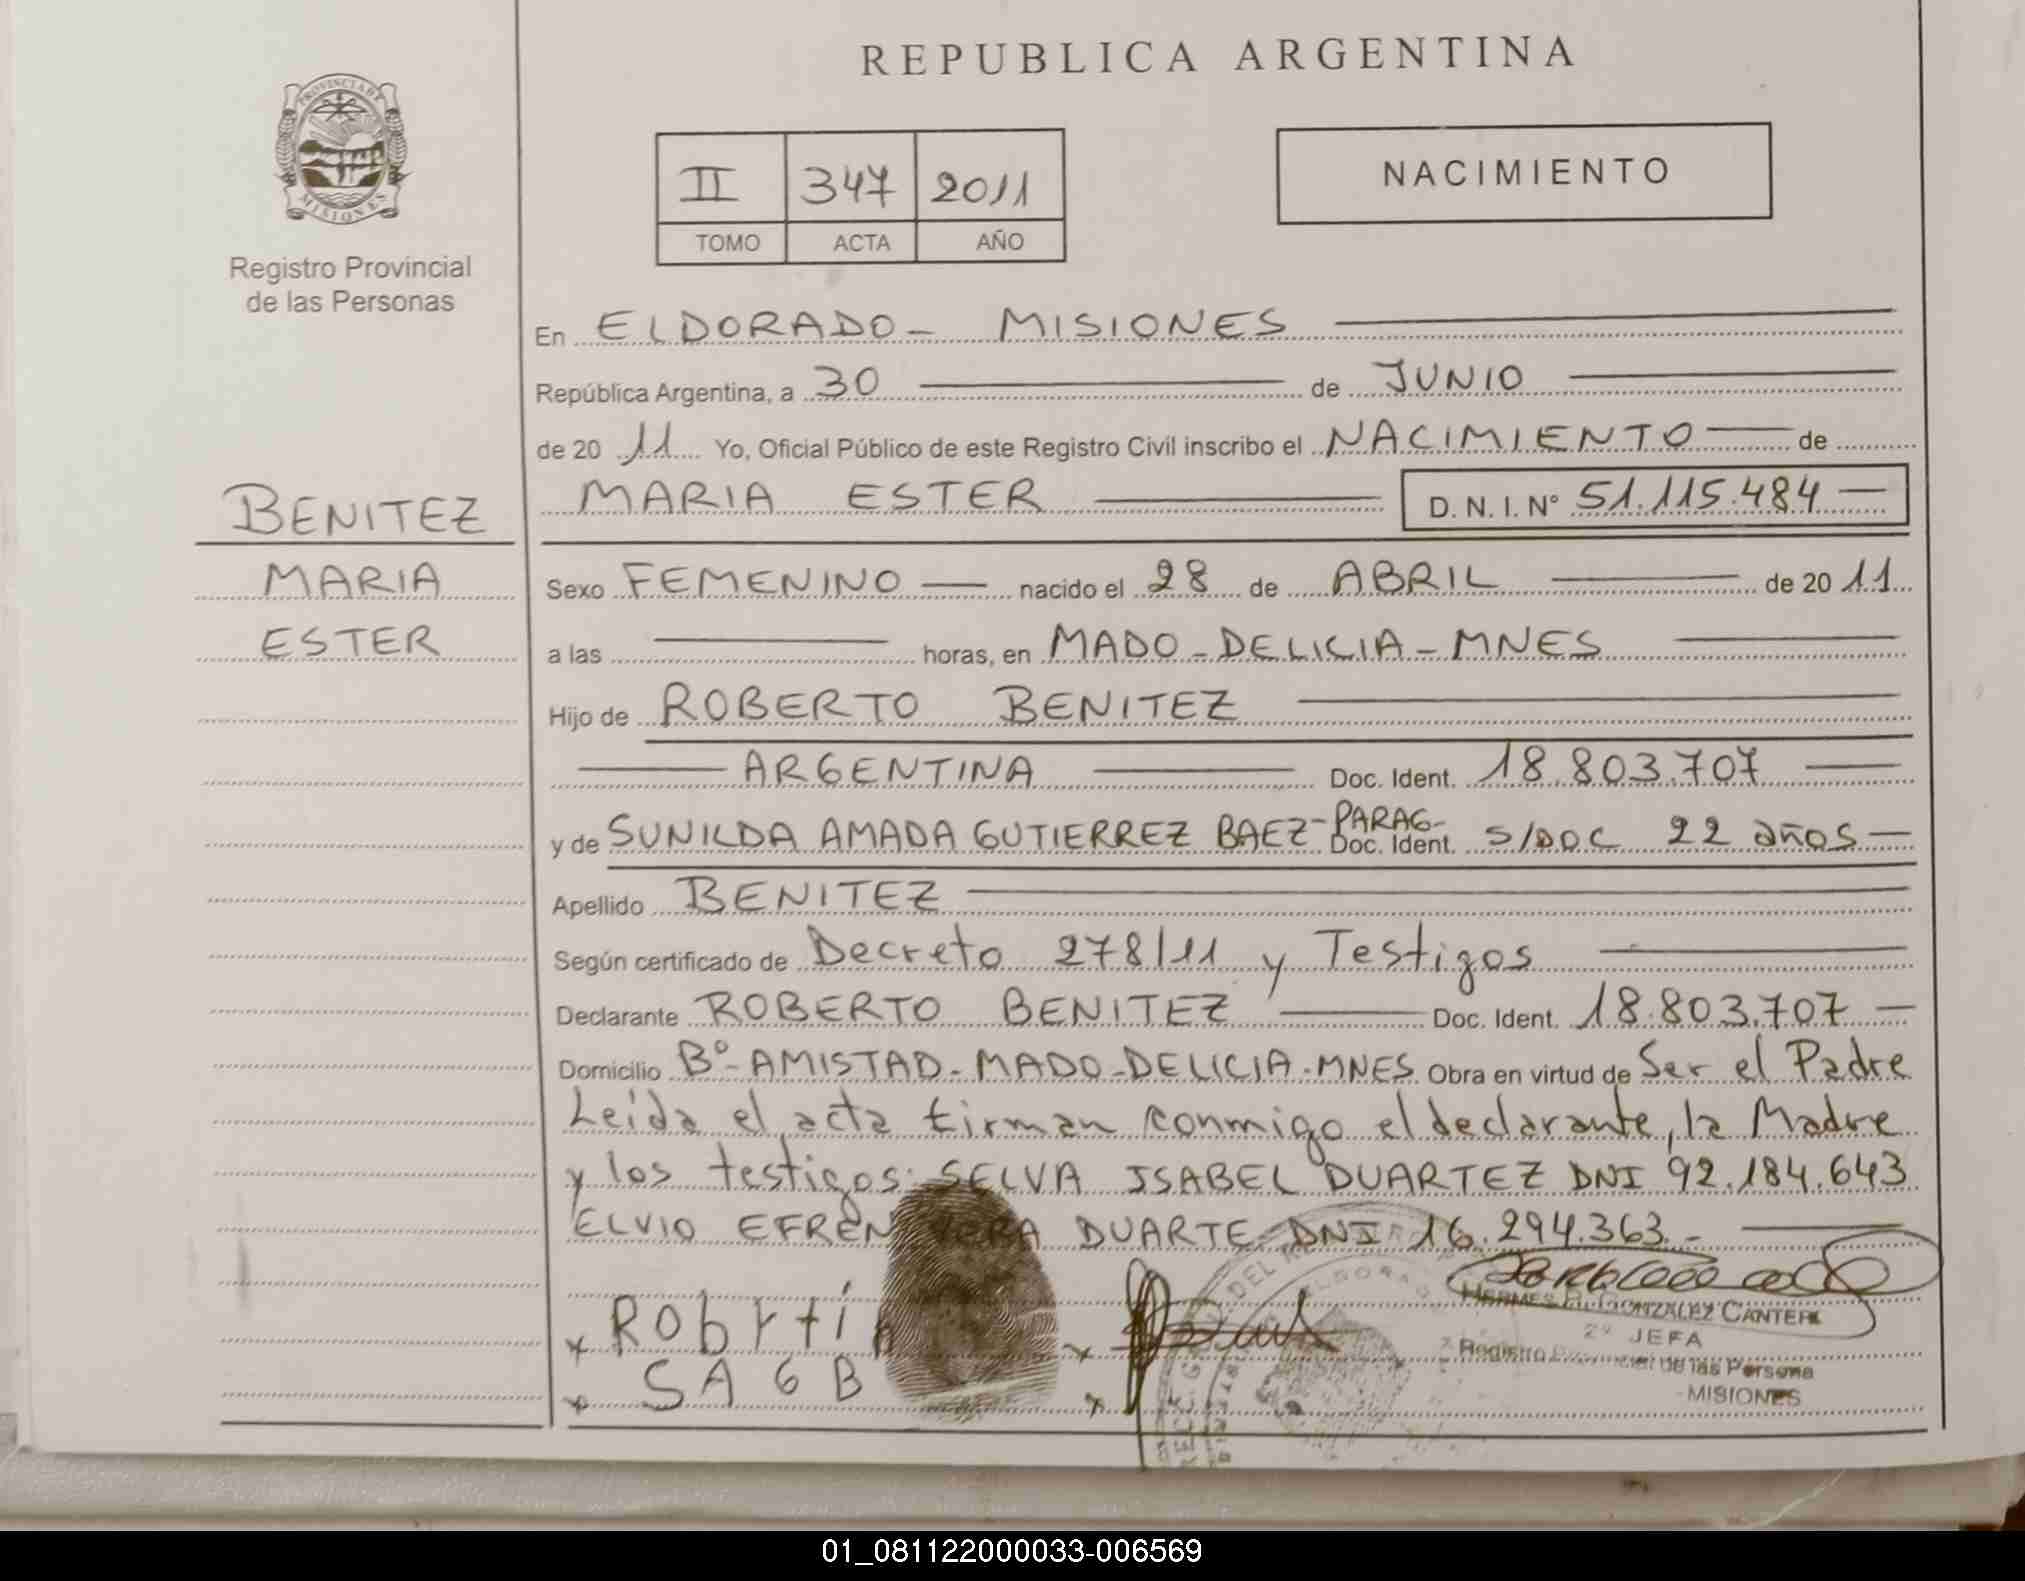 REPUBLICA ARGENTINA
PROVINCIA DE
MISIONES
Registro Provincial
de las Personas
II 347 2011
TOMO ACTA AÑO
NACIMIENTO
En ELDORADO - MISIONES
República Argentina, a 30 de JUNIO
de 20 11 Yo, Oficial Público de este Registro Civil inscribo el NACIMIENTO de
MARIA ESTER D. N. I. Nº 51.115.484
BENITEZ
MARIA
ESTER
Sexo FEMENINO nacido el 28 de ABRIL de 20 11
a las horas, en MADO - DELICIA - MNES
Hijo de ROBERTO BENITEZ
ARGENTINA Doc. Ident. 18.803.707
y de SUNILDA AMADA GUTIERREZ BAEZ - PARAG- Doc. Ident. S/DOC 22 años
Apellido BENITEZ
Según certificado de Decreto 278/11 y Testigos
Declarante ROBERTO BENITEZ Doc. Ident. 18.803.707
Domicilio Bº - AMISTAD - MADO - DELICIA - MNES Obra en virtud de Ser el Padre
Leída el acta firman conmigo el declarante, la Madre
y los testigos: SELVA ISABEL DUARTEZ DNI 92.184.643
ELVIO EFREN VERA DUARTE DNI 16.294.363.-
x Roberti x
x SA G B x
ELDORADO
HERMES R. GONZALEZ CANTER
2º JEFA
Registro Provincial de las Persona
MISIONES
01_081122000033-006569